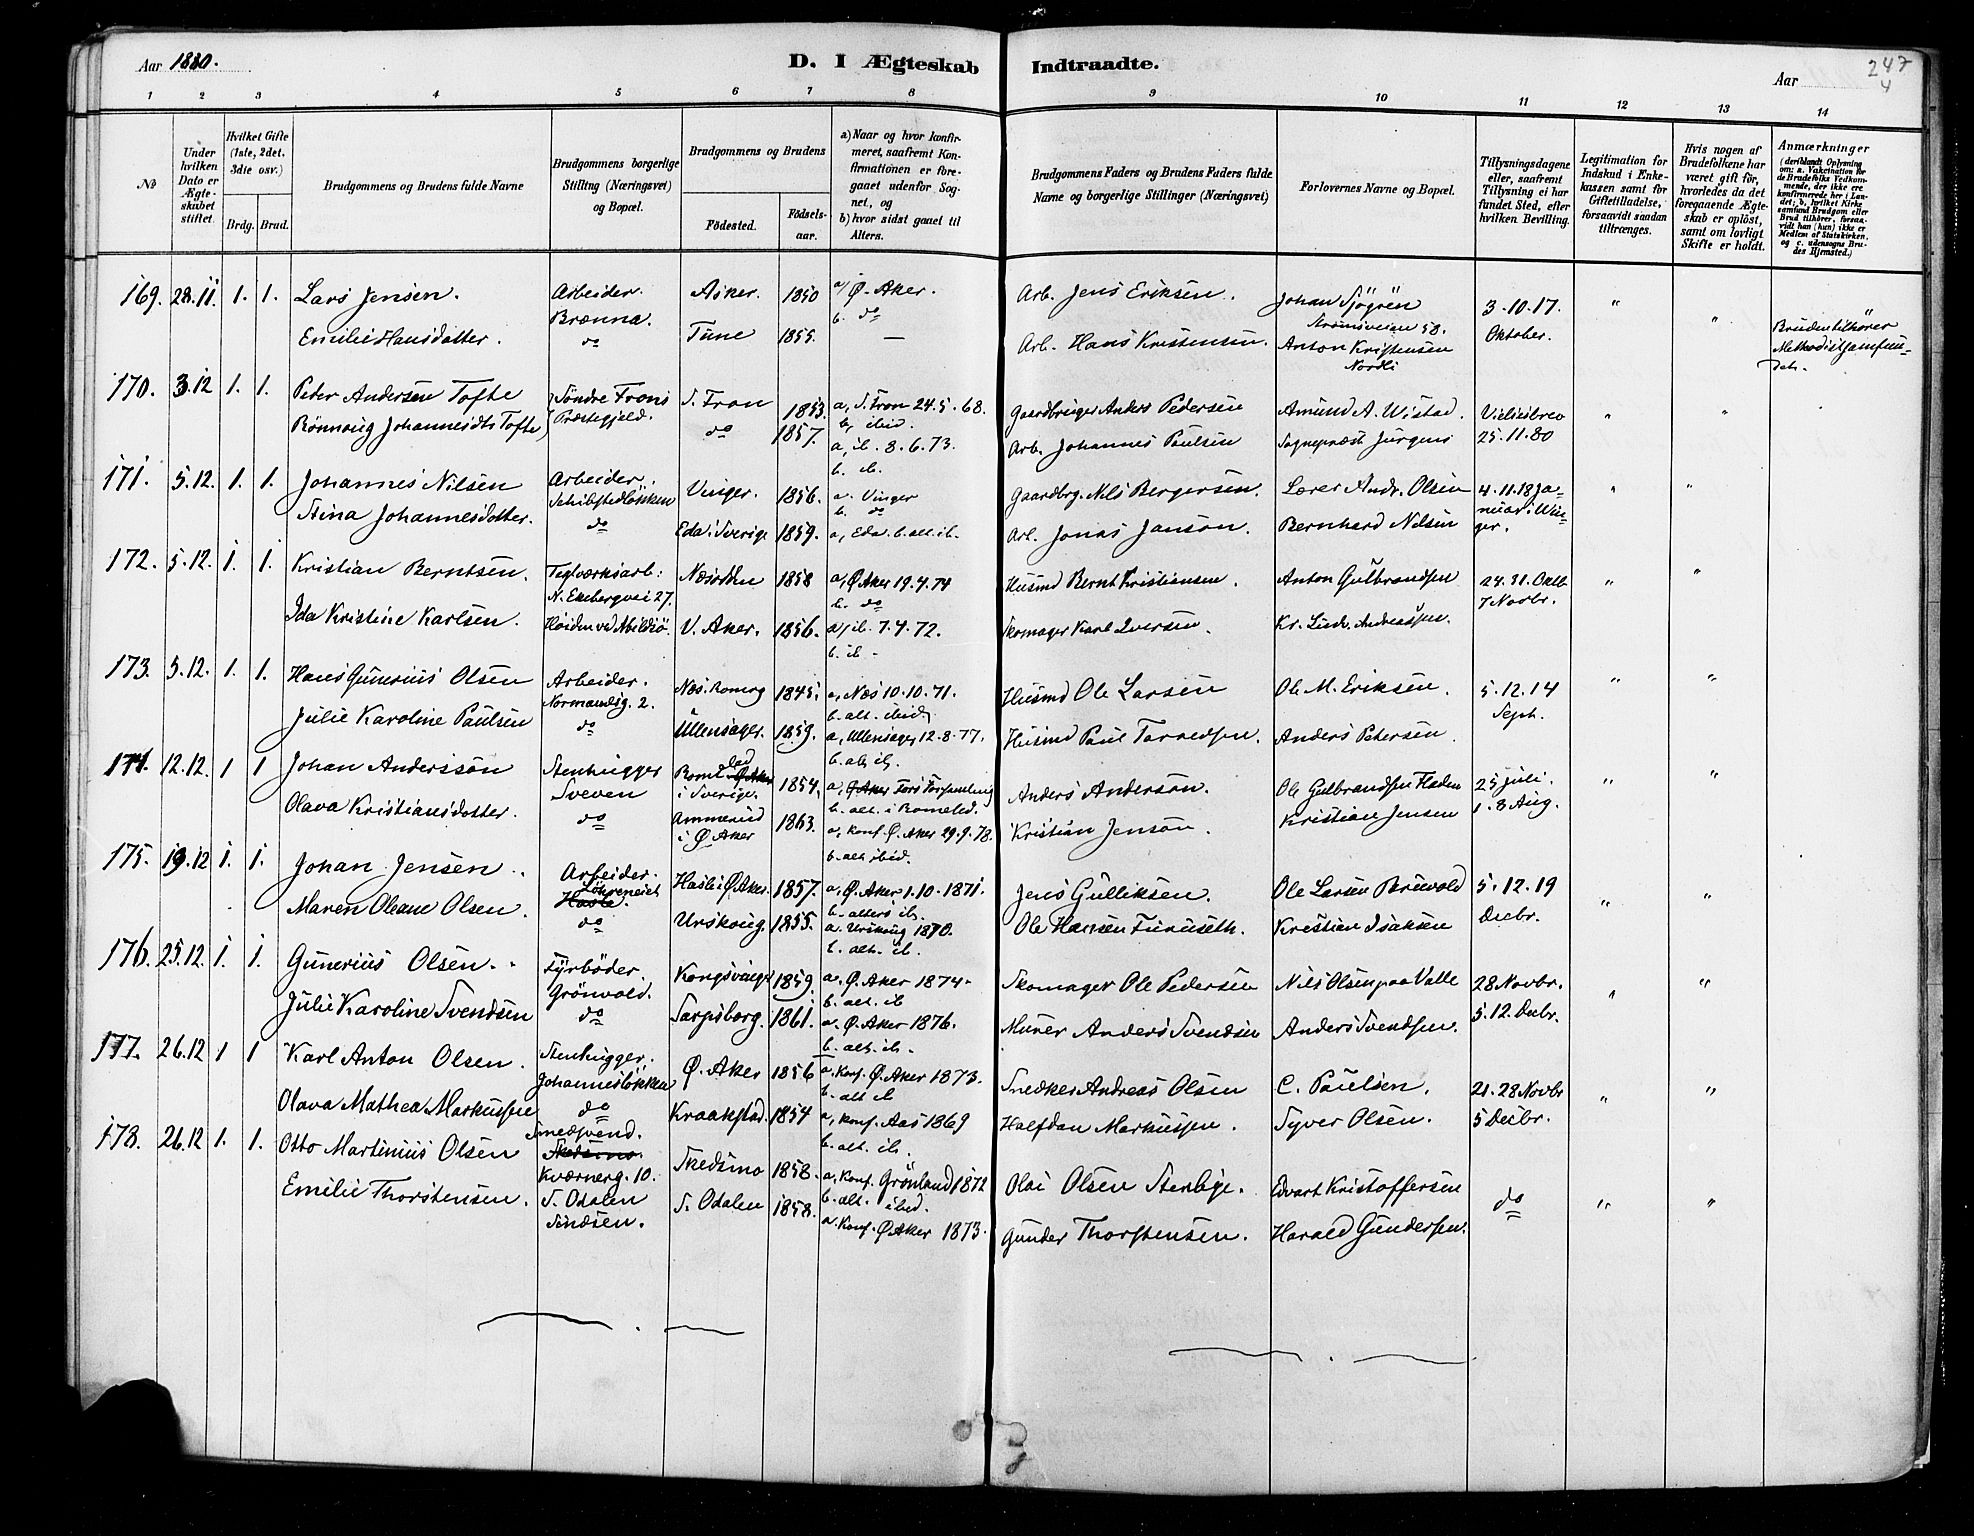 Aar 1880.
D. I Ægteskab Indtraadte.
Aar
247
4
1 2 3 4 5 6 7 8 9 10 11 12 13 14
No
Under hvilken Dato er Ægteskabet stiftet.
Hvilket Gifte (1ste, 2det, 3die osv.)
Brdg. Brud.
Brudgommens og Brudens fulde Navne
Brudgommens borgerlige Stilling (Næringsvei) og Bopæl.
Brudgommens og Brudens
Fødested.
Fødselsaar.
a) Naar og hvor konfirmeret, saafremt Konfirmationen er foregaaet udenfor Sognet, og
b) hvor sidst gaaet til Alters.
Brudgommens Faders og Brudens Faders fulde Navne og borgerlige Stillinger (Næringsvei)
Forlovernes Navne og Bopæl.
Tillysningsdagene eller, saafremt Tillysning ei har fundet Sted, efter hvilken Bevilling.
Legitimation for Indskud i Enkekassen samt for Giftetilladelse, forsaavidt saadan tiltrænges.
Hvis nogen af Brudefolkene har været gift før, hvorledes da det foregaaende Ægteskab er opløst, samt om lovligt Skifte er holdt.
Anmærkninger
(deriblandt Oplysning om: a. Vaksination for de Brudefolks Vedkommende, der ikke ere konfirmerede her i Landet; b. hvilket Kirkesamfund Brudgom eller Brud tilhører, forsaavidt han (hun) ikke er Medlem af Statskirken, og c. udensogns Brudes Hjemsted.)
169. 28.11. 1. 1. Lars Jensen. Arbeider. Brænna. Asker. 1850 a/ Ø. Aker. b. do Arb. Jens Eriksen. Johan Sjögrén Strömsveien 58. 3.10.17. Oktober. " "
Emilie Hansdatter. do Tune 1855. — Arb. Hans Kristensen. Anton Kristensen Nordli Bruden tilhører Methodistsamfundet.
170. 3.12 1. 1. Peter Andersen Tofte Söndre Frons Præstegjeld. S. Fron 1853. a, S. Fron 24.5.68. b, ibid. Gaardbruger Anders Pedersen Amund A. Wistad. Vielsesbrev 25.11.80 " "
Rönnaug Johannesdtr Tofte do 1857. a, ib. 8.6.73. b. ib. Arb. Johannes Paulsen Sognepræst Jürgens
171. 5.12. 1. 1. Johannes Nilsen Arbeider. Schibstedlökken Vinger. 1856. a. Vinger b. do Gaardbrg. Nils Bergersen. Lærer Andr. Olsen 4.11.18 Januar i Winger. " "
Stina Johannesdotter. do Eda i Sverige 1859. a, Eda. b. alt. ib. Arb. Jonas Janson. Bernhard Nilsen
172. 5.12. 1. 1. Kristian Berntsen. Teglværksarb: N. Ekebergvei 27. Næsodden 1858 a, Ø. Aker 19.4.74 b. do Husmd Bernt Kristiansen. Anton Gulbrandsen 24.31. Oktb. 7 Novbr. " "
Ida Kristine Karlsen. Höiden ved Abildsö. V. Aker. 1856. a, ib. 7.4.72. b. ib. Skomager Karl Iversen. Kr. Lindv. Andreassen.
173. 5.12. 1. 1. Hans Gunerius Olsen Arbeider. Normandsg. 2. Næs. Romrg 1845. a, Næs 10.10.71. b. alt. ibid. Husmd Ole Larsen Ole M. Eriksen. 5.12.14 Septb. " "
Julie Karoline Paulsen do Ullensager. 1859. a, Ullensager 12.8.77. b. alt. ib. Husmd Paul Tarredsen. Anders Petersen
174. 12.12. 1 1 Johan Anderssön Stenhugger Sveven Romelad i Sverige. 1854. a, Ø Aker Fors Forsamling b. alt. i Romeled. Anders Andersön. Ole Gulbrandsen Fladen 25 Juli. 1. 8 Aug. " "
Olava Kristiansdotter. do Ammerud i Ø. Aker 1863. a, konf. Ø. Aker 29.9.78. b. alt. ibid. Kristian Jensön. Kristian Jensen
175. 19.12 1. 1. Johan Jensen. Arbeider. Hasle. Hasle i Ø. Aker. 1857. a, Ø. Aker 1.10.1871. b. alters ib. Jens Gulliksen. Ole Larsen Bruvold 5.12.19 Decbr. " "
Maren Oleane Olsen. do Urskoug. 1855. a. Urskoug 1870. b. alt. ib. Ole Hansen Furuseth. Kristian Isaksen
176. 25.12. 1. 1. Gunerius Olsen. Fyrböder. Grönvold. Kongsvinger 1859. a. Ø. Aker 1874. b. alt. ib Skomager Ole Pedersen Nils Olsen paa Valle 28 Novbr. 5.12. Decbr. " "
Julie Karoline Svendsen do Sarpsborg. 1861. a. Ø. Aker 1876. b. alt. ib. Murer Anders Svendsen Anders Svendsen.
177. 26.12 1 1 Karl Anton Olsen. Stenhugger. Johanneslökken Ø. Aker 1856 a. Konf. Ø. Aker 1873. b. alt ib Snedker Andreas Olsen C. Paulsen. 21.28 Novbr 5 Decbr. " "
Olava Mathea Markussen do Kraakstad. 1854 a, konf. Aas 1869 b. alt. ib. Halfdan Markussen. Syver Olsen.
178. 26.12 1. 1. Otto Martinius Olsen Smedsvend. Skedsmo. Kværnerg. 10. Skedsmo 1858. a, Konf. Grönland 1872 b. alt. ibid. Olai Olsen Stenbye. Edvart Kristoffersen do " "
Emilie Thorstensen. S. Odalen S. Odalen 1858. a. Konf. Ø Aker 1873. Gunder Thorstensen. Harald Gundersen.